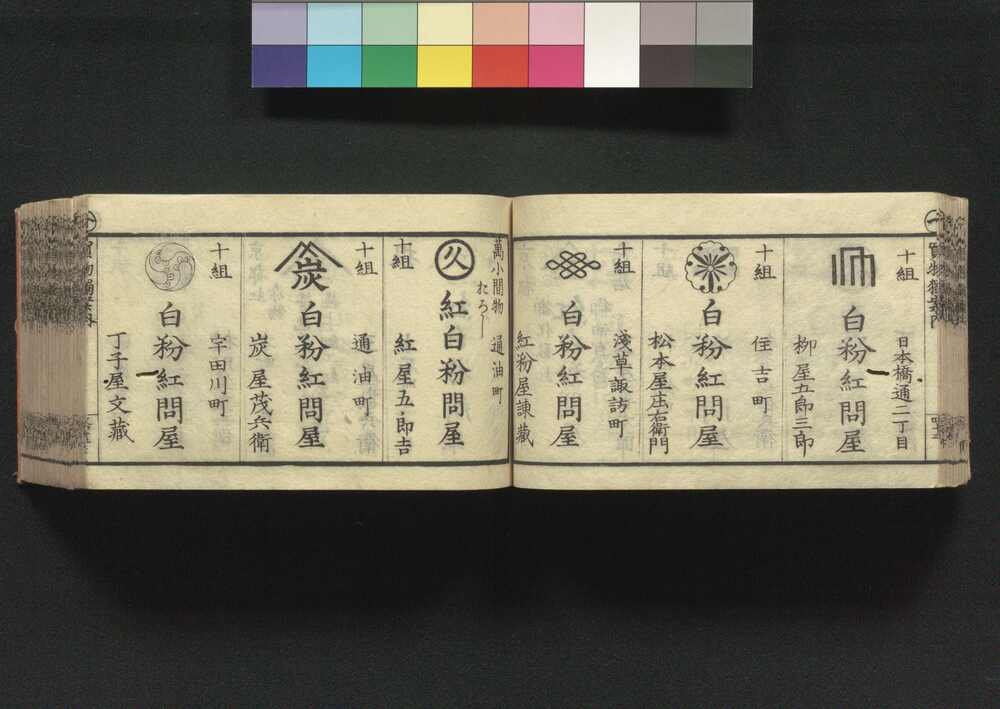 十組
日本橋通二丁目
白粉紅問屋
柳屋五郎三郎
十組
住吉町
白粉紅問屋
松本屋庄右衛門
十組
淺草諏訪町
白粉紅問屋
紅粉屋諌藏
萬小間物
おろし
通油町
久
紅白粉問屋
十組
紅屋五郎吉
十組
通油町
炭
白粉紅問屋
炭屋茂兵衛
十組
宇田川町
白粉紅問屋
丁子屋文藏